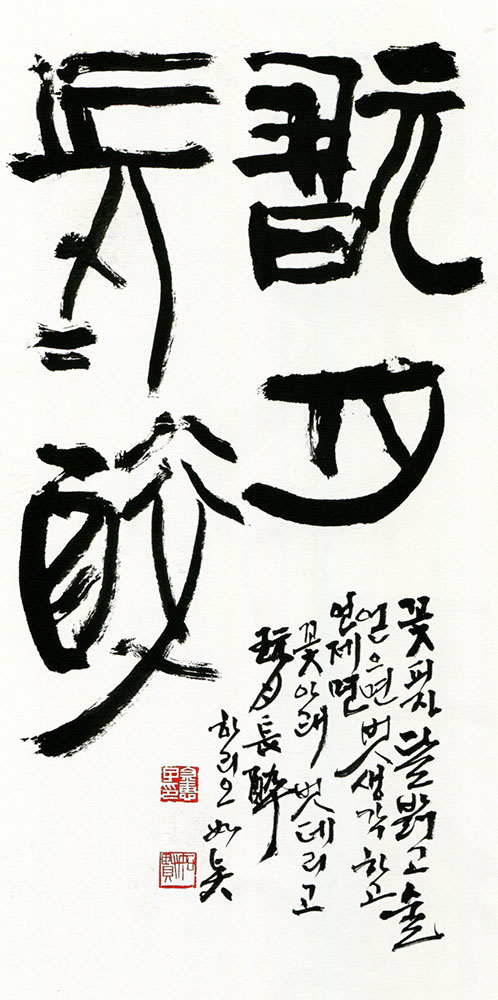 翫月
長醉
꽃 피자 달 밝고 술
얻으면 벗 생각 하고
언제면
꽃 아래 벗 데리고
玩月長醉
하리오 如